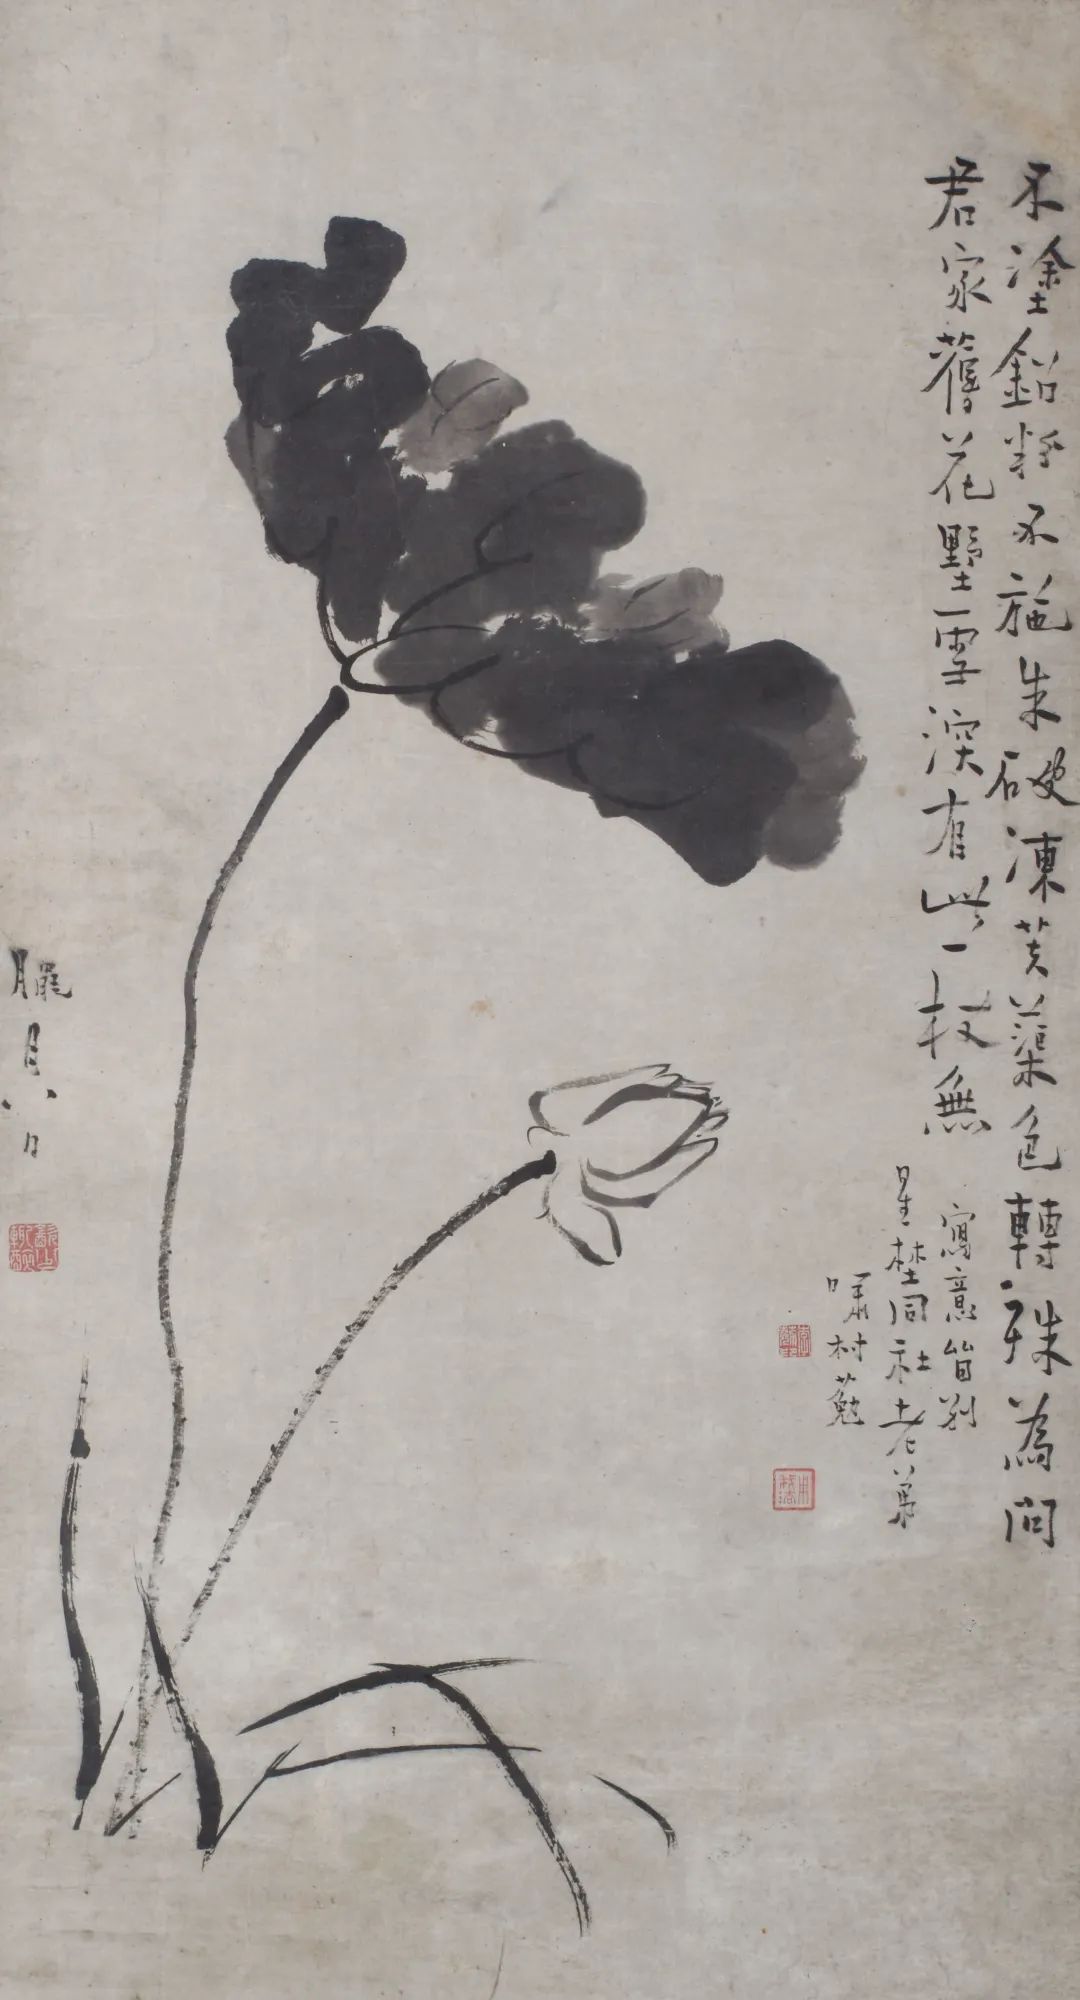 不塗鉛粉不施朱破凍芙蕖色轉殊為問
君家舊花墅雪深有此一枝無
寫意留別
星埜同社老弟
嘯村葂
臘月八日